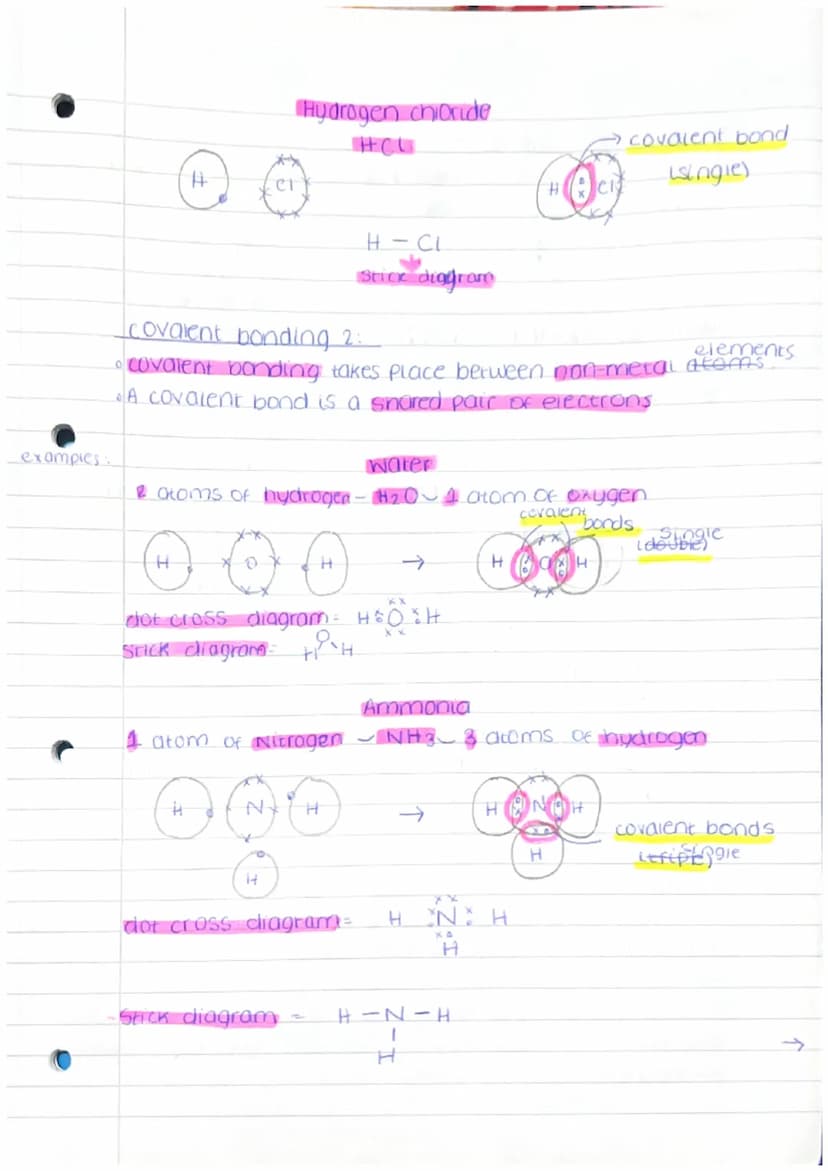 Hydrogen chloride
HCl
covalent bond
(single)
H
Cl
H
Cl
H – Cl
stick diagram
covalent bonding 2:
covalent bonding takes place between non-metal atoms elements
A covalent bond is a shared pair of electrons
examples:
Water
2 atoms of hydrogen – H2O – 1 atom of oxygen
covalent bonds
(double) single
H
O
H
→
H
O
H
dot cross diagram = H O H
stick diagram = H O H
Ammonia
1 atom of Nitrogen – NH3 – 3 atoms of hydrogen
H
N
H
→
H
N
H
H
H
covalent bonds
(triple) single
dot cross diagram = H N H
H
stick diagram = H – N – H
H
→